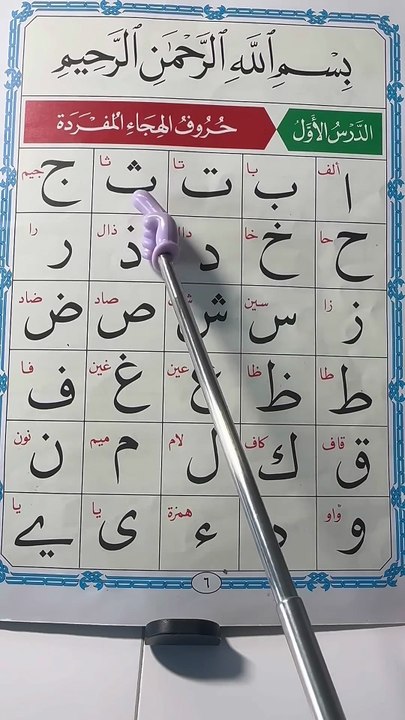 بِسْمِ ٱللَّهِ ٱلرَّحْمَٰنِ ٱلرَّحِيمِ
الدَّرْسُ الأَوَّلُ حُرُوفُ الهِجَاءِ المُفْرَدَة
ألف با تا ثا جيم
ا ب ت ث ج
حا خا ذال را
ح خ د ذ ر
زا سين صاد ضاد
ز س ش ص ض
طا ظا عين غين فا
ط ظ ع غ ف
قاف كاف لام ميم نون
ق ك ل م ن
واو همزة يا يا
و ء ی ے
٦